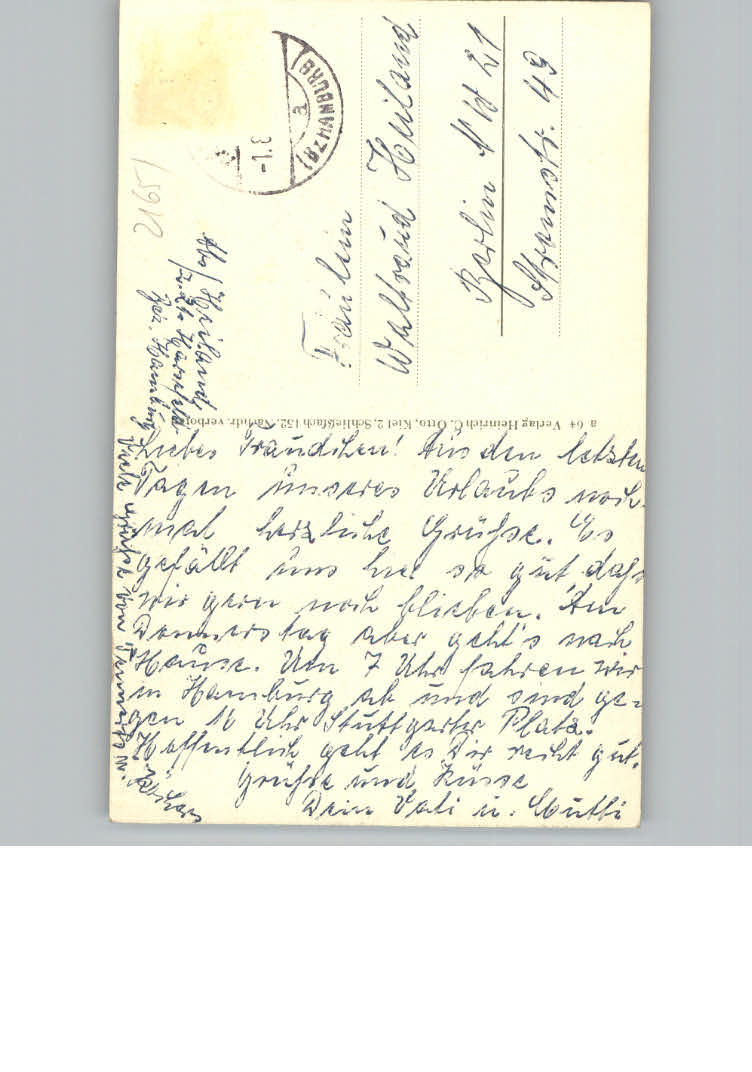 Liebes Traudchen! Aus den letzten
Tagen unseres Urlaubs noch-
mal herzliche Grüße. Es
gefällt uns hier so gut, daß
wir gern noch blieben. Am
Donnerstag aber geht's nach
Hause. Um 7 Uhr fahren wir
in Hamburg ab und sind ge-
gen 16 Uhr Stuttgarter Platz.
Hoffentlich geht es Dir recht gut.
Grüße und Küsse
Dein Vati u. Mutti
Viele Grüße von
Abs/ Heiland
z. Zt. Harsefeld
Bez. Hamburg
Fräulein
Waltraud Heiland
Berlin NW 21
Stromstr. 49
(Bz HAMBURG)
a
-1.8
2165/
a 64 Verlag Heinrich C. Otto, Kiel 2, Schließfach 152. Nachdr. verboten